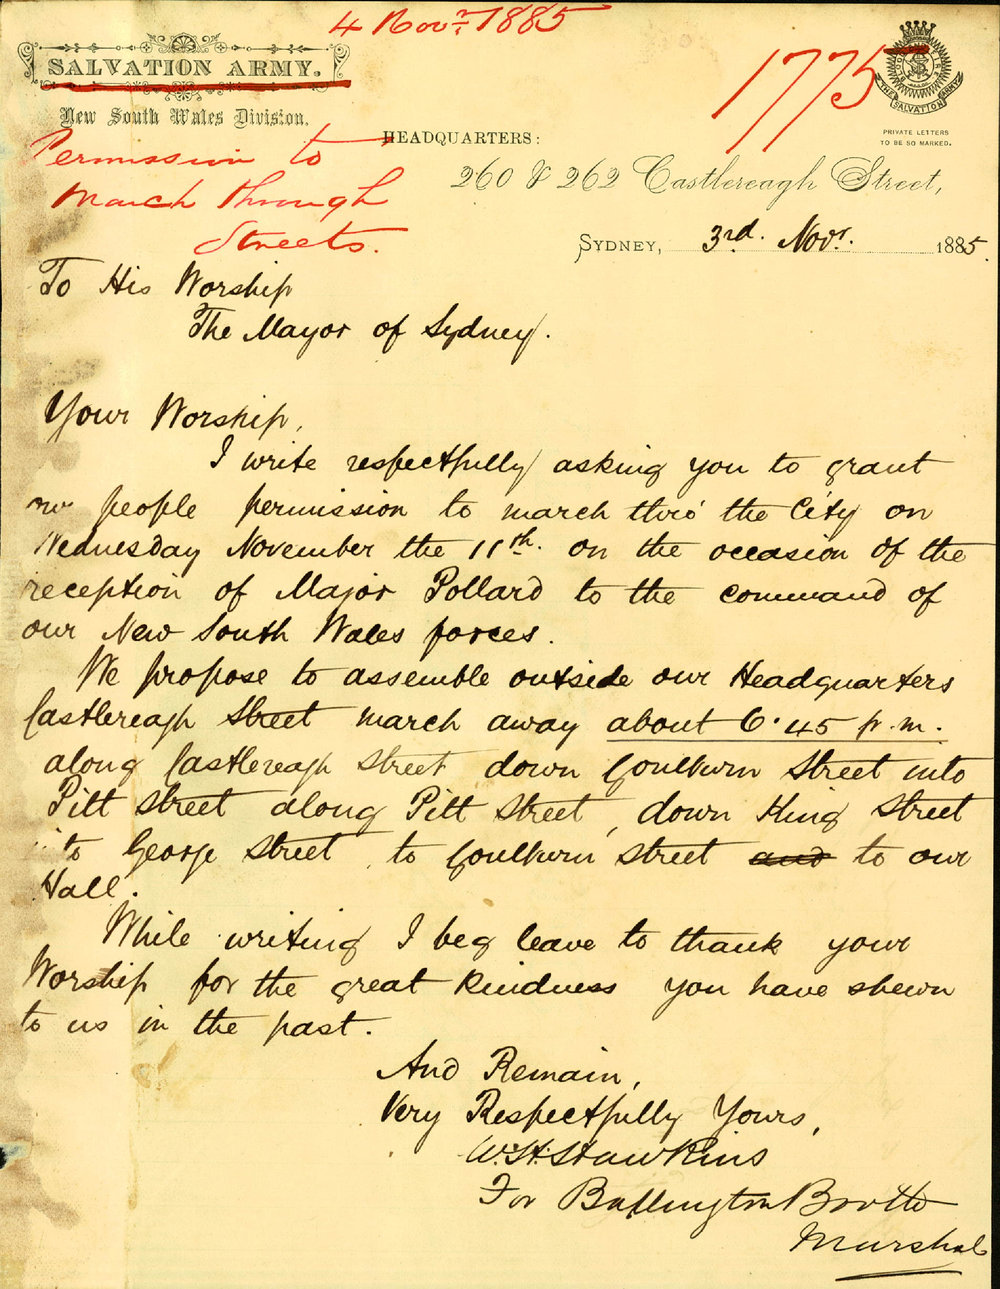 4 Novr. 1885
SALVATION ARMY.
New South Wales Division.
1775
THE SALVATION ARMY
PRIVATE LETTERS
TO BE SO MARKED.
HEADQUARTERS:
260 & 262 Castlereagh Street,
Permission to
March through
Streets.
SYDNEY, 3rd. Novr. 1885.
To His Worship
The Mayor of Sydney.
Your Worship,
I write respectfully asking you to grant
our people permission to march thro' the City on
Wednesday November the 11th. on the occasion of the
reception of Major Pollard to the command of
our New South Wales forces.
We propose to assemble outside our Headquarters
Castlereagh Street march away about 6.45 p.m.
along Castlereagh Street down Goulburn Street into
Pitt Street along Pitt Street, down King Street
into George Street to Goulburn Street and to our
Hall.
While writing I beg leave to thank your
Worship for the great kindness you have shewn
to us in the past.
And Remain,
Very Respectfully Yours,
W. H. Hawkins
For Ballington Booth
Marshal